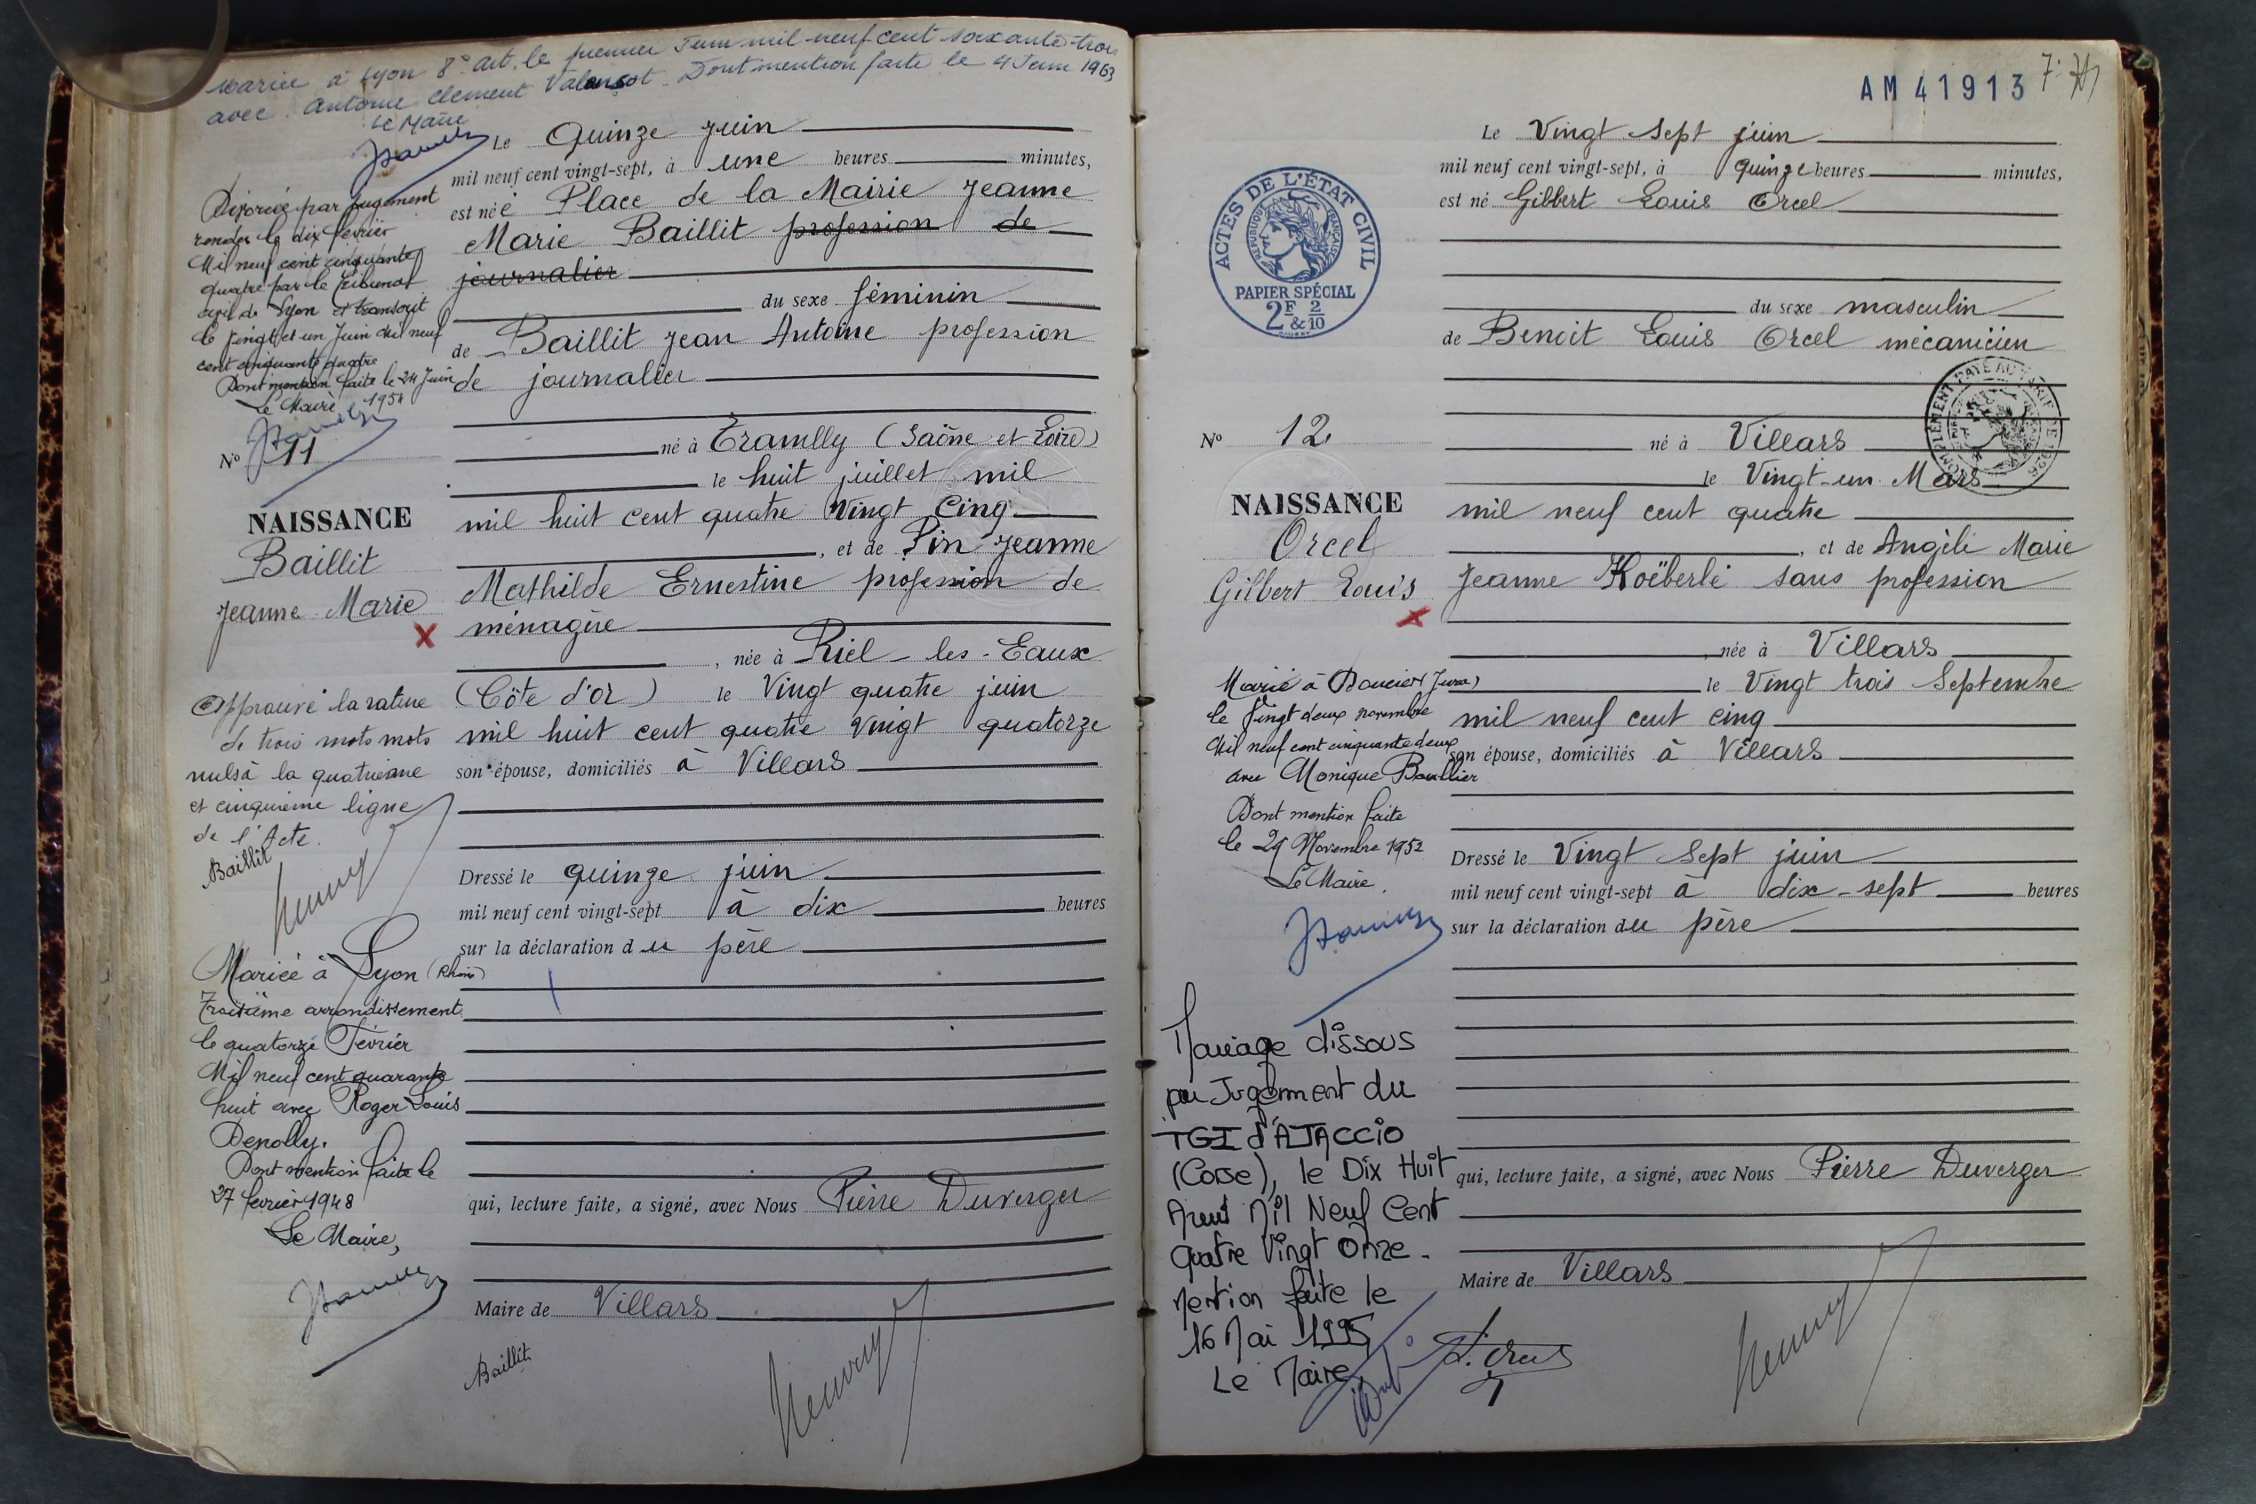 Mariée à Lyon 8e Art. le premier Juin mil neuf cent soixante-trois
avec Antoine Clement Valansot. Dont mention faite le 4 Juin 1963
Le Maire
Divorcée par jugement
rendu le dix février
Mil neuf cent cinquante
quatre par le tribunal
civil de Lyon et transcrit
le vingt et un Juin Mil neuf
cent cinquante quatre
Dont mention faite le 24 Juin
1954
Le Maire
No 11
NAISSANCE
Baillit
Jeanne Marie
X
Approuvé la rature
de trois mots mots
nuls à la quatrième
et cinquième ligne
de l'Acte.
Baillit
Mariée à Lyon (Rhône)
Troisième arrondissement
le quatorze Février
Mil neuf cent quarante
huit avec Roger Louis
Denolly.
Dont mention faite le
27 février 1948
Le Maire,
Le Quinze Juin
mil neuf cent vingt-sept, à une heures minutes,
est née Place de la Mairie Jeanne
Marie Baillit profession de
journalier
du sexe féminin
de Baillit Jean Antoine profession
de journalier
né à Tramlly (Saône et Loire)
le huit juillet mil
mil huit cent quatre Vingt Cinq
, et de Pin Jeanne
Mathilde Ernestine profession de
ménagère
, née à Riel-les-Eaux
(Côte d'or) le Vingt quatre juin
mil huit cent quatre Vingt quatorze
son épouse, domiciliés à Villars
Dressé le quinze juin
mil neuf cent vingt-sept à dix heures
sur la déclaration du père
qui, lecture faite, a signé, avec Nous Pierre Duverger
Maire de Villars
Baillit
AM 41913
ACTES DE L'ÉTAT CIVIL
RÉPUBLIQUE FRANÇAISE
PAPIER SPÉCIAL
2F & 2/10
No 12
NAISSANCE
Orcel
Gilbert Louis
X
Marié à Doucier (Jura)
le Vingt deux novembre
Mil neuf cent cinquante deux
avec Monique
Dont mention faite
le 29 Novembre 1952
Le Maire.
Mariage dissous
par Jugement du
TGI d'AJACCIO
(Corse), le Dix Huit
Mil Neuf Cent
Quatre Vingt Onze.
Mention faite le
16 Mai 1995
Le Maire
Le Vingt Sept juin
mil neuf cent vingt-sept, à quinze heures minutes,
est né Gilbert Louis Orcel
du sexe masculin
de Benoit Louis Orcel mécanicien
né à Villars
le Vingt-un Mars
mil neuf cent quatre
, et de Angèle Marie
Jeanne Koëberlé sans profession
, née à Villars
le Vingt trois Septembre
mil neuf cent cinq
son épouse, domiciliés à Villars
Dressé le Vingt Sept juin
mil neuf cent vingt-sept à dix-sept heures
sur la déclaration du père
qui, lecture faite, a signé, avec Nous Pierre Duverger
Maire de Villars